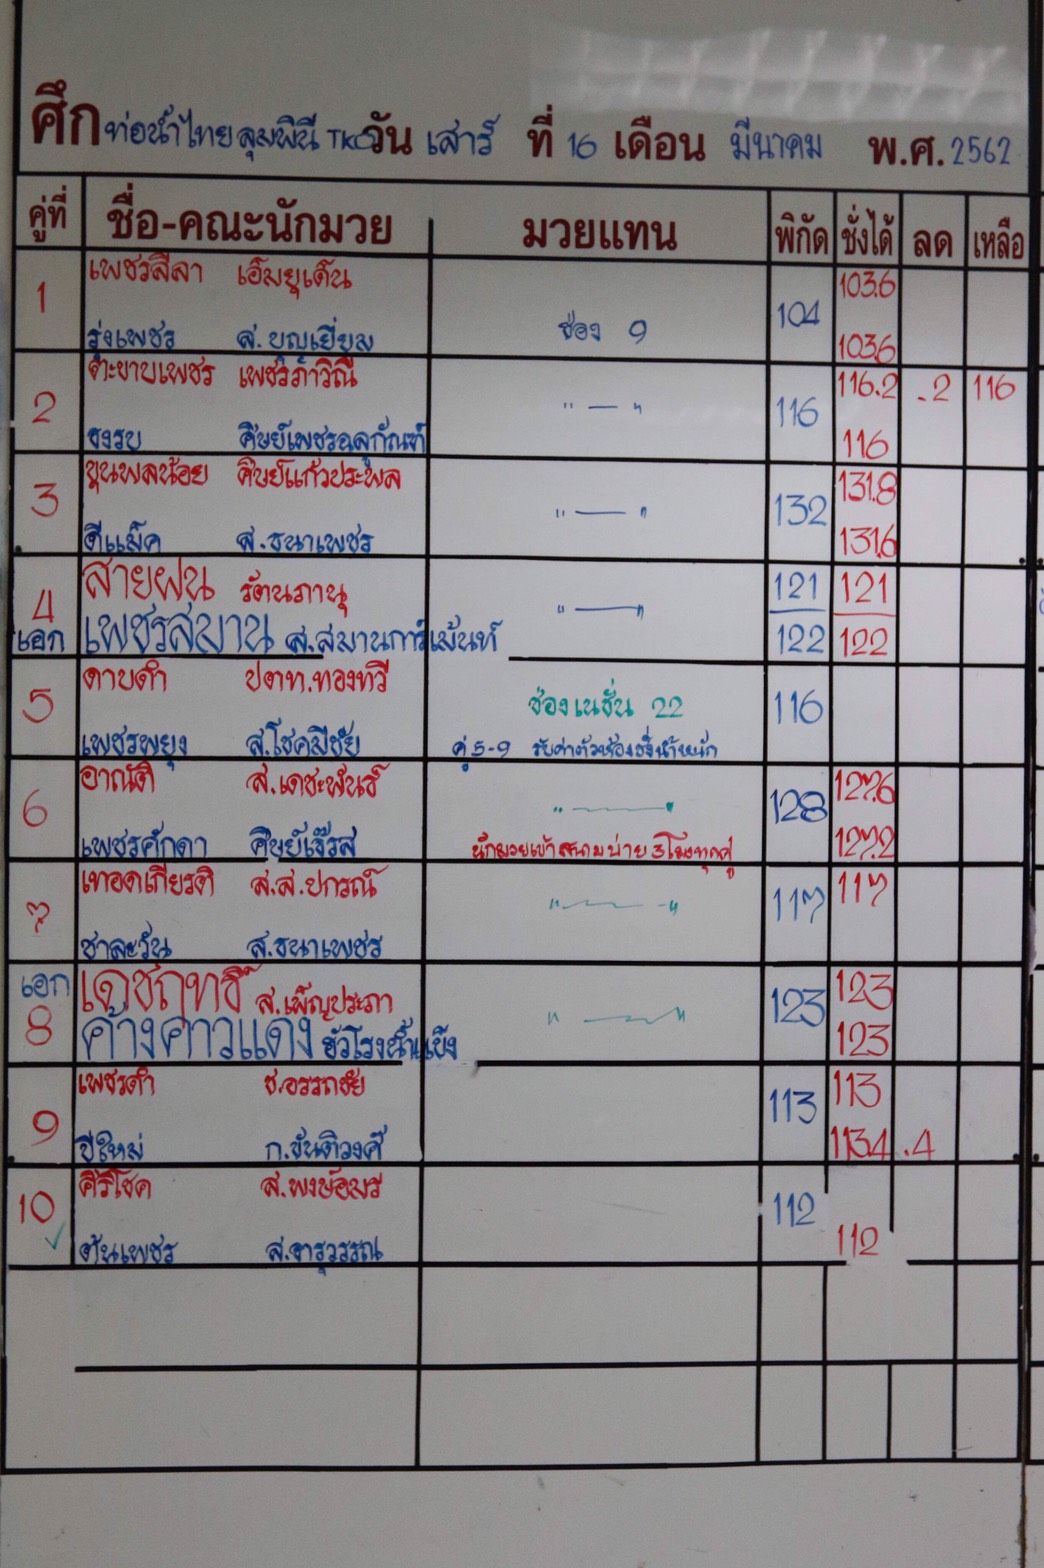 ศึก ท่อน้ำไทยลุมพินี TKO วัน เสาร์ ที่ 16 เดือน มีนาคม พ.ศ. 2562
คู่ที่ ชื่อ-คณะนักมวย มวยแทน พิกัด ชั่งได้ ลด เหลือ
เพชรสีลา เอ็มยุเด็น 103.6
1 ช่อง 9 104
รุ่งเพชร ส.บุญเยี่ยม 103.6
ตะยาบเพชร เพชรภักวิณี 116.2 .2 116
2 " — " 116
ยงรบ ศิษย์เพชรอลุภัณฑ์ 116
ขุนพลน้อย ศิษย์แก้วประพล 131.8
3 " — " 132
ดีแม็ค ส.ธนาเพชร 131.6
สายฝน รัตนภานุ 121 121
4 " — "
เอก เพชรสมาน ส.สมานการ์เม้นท์ 122 122
ดาบดำ ปตท.ทองทวี
5 ช่องเนชั่น 22 116
เพชรพยุง ส.โชคมีชัย คู่ 5-9 รับค่าตัวห้องชั่งน้ำหนัก
อาณัติ ส.เดชะพันธ์ 127.6
6 " — " 128
เพชรศักดา ศิษย์เจ๊รัส นักมวยเข้าสนามบ่าย 3 โมงทุกคู่ 127.2
เทอดเกียรติ ส.ส.ปกรณ์ 117
7 " — " 117
ชาละวัน ส.ธนาเพชร
เอก เดชฤทธิ์ ส.เพ็ญประภา 123
8 " — " 123
ค้างคาวแดง ฮั่วโรงน้ำแข็ง 123
เพชรดำ ช.อรรถชัย 113
9 113
ปีใหม่ ก.ขันติวงศ์ 113.4 .4
ศิริโชค ส.พงษ์อมร
10 112
ต้นเพชร ส.จารุวรรณ 112